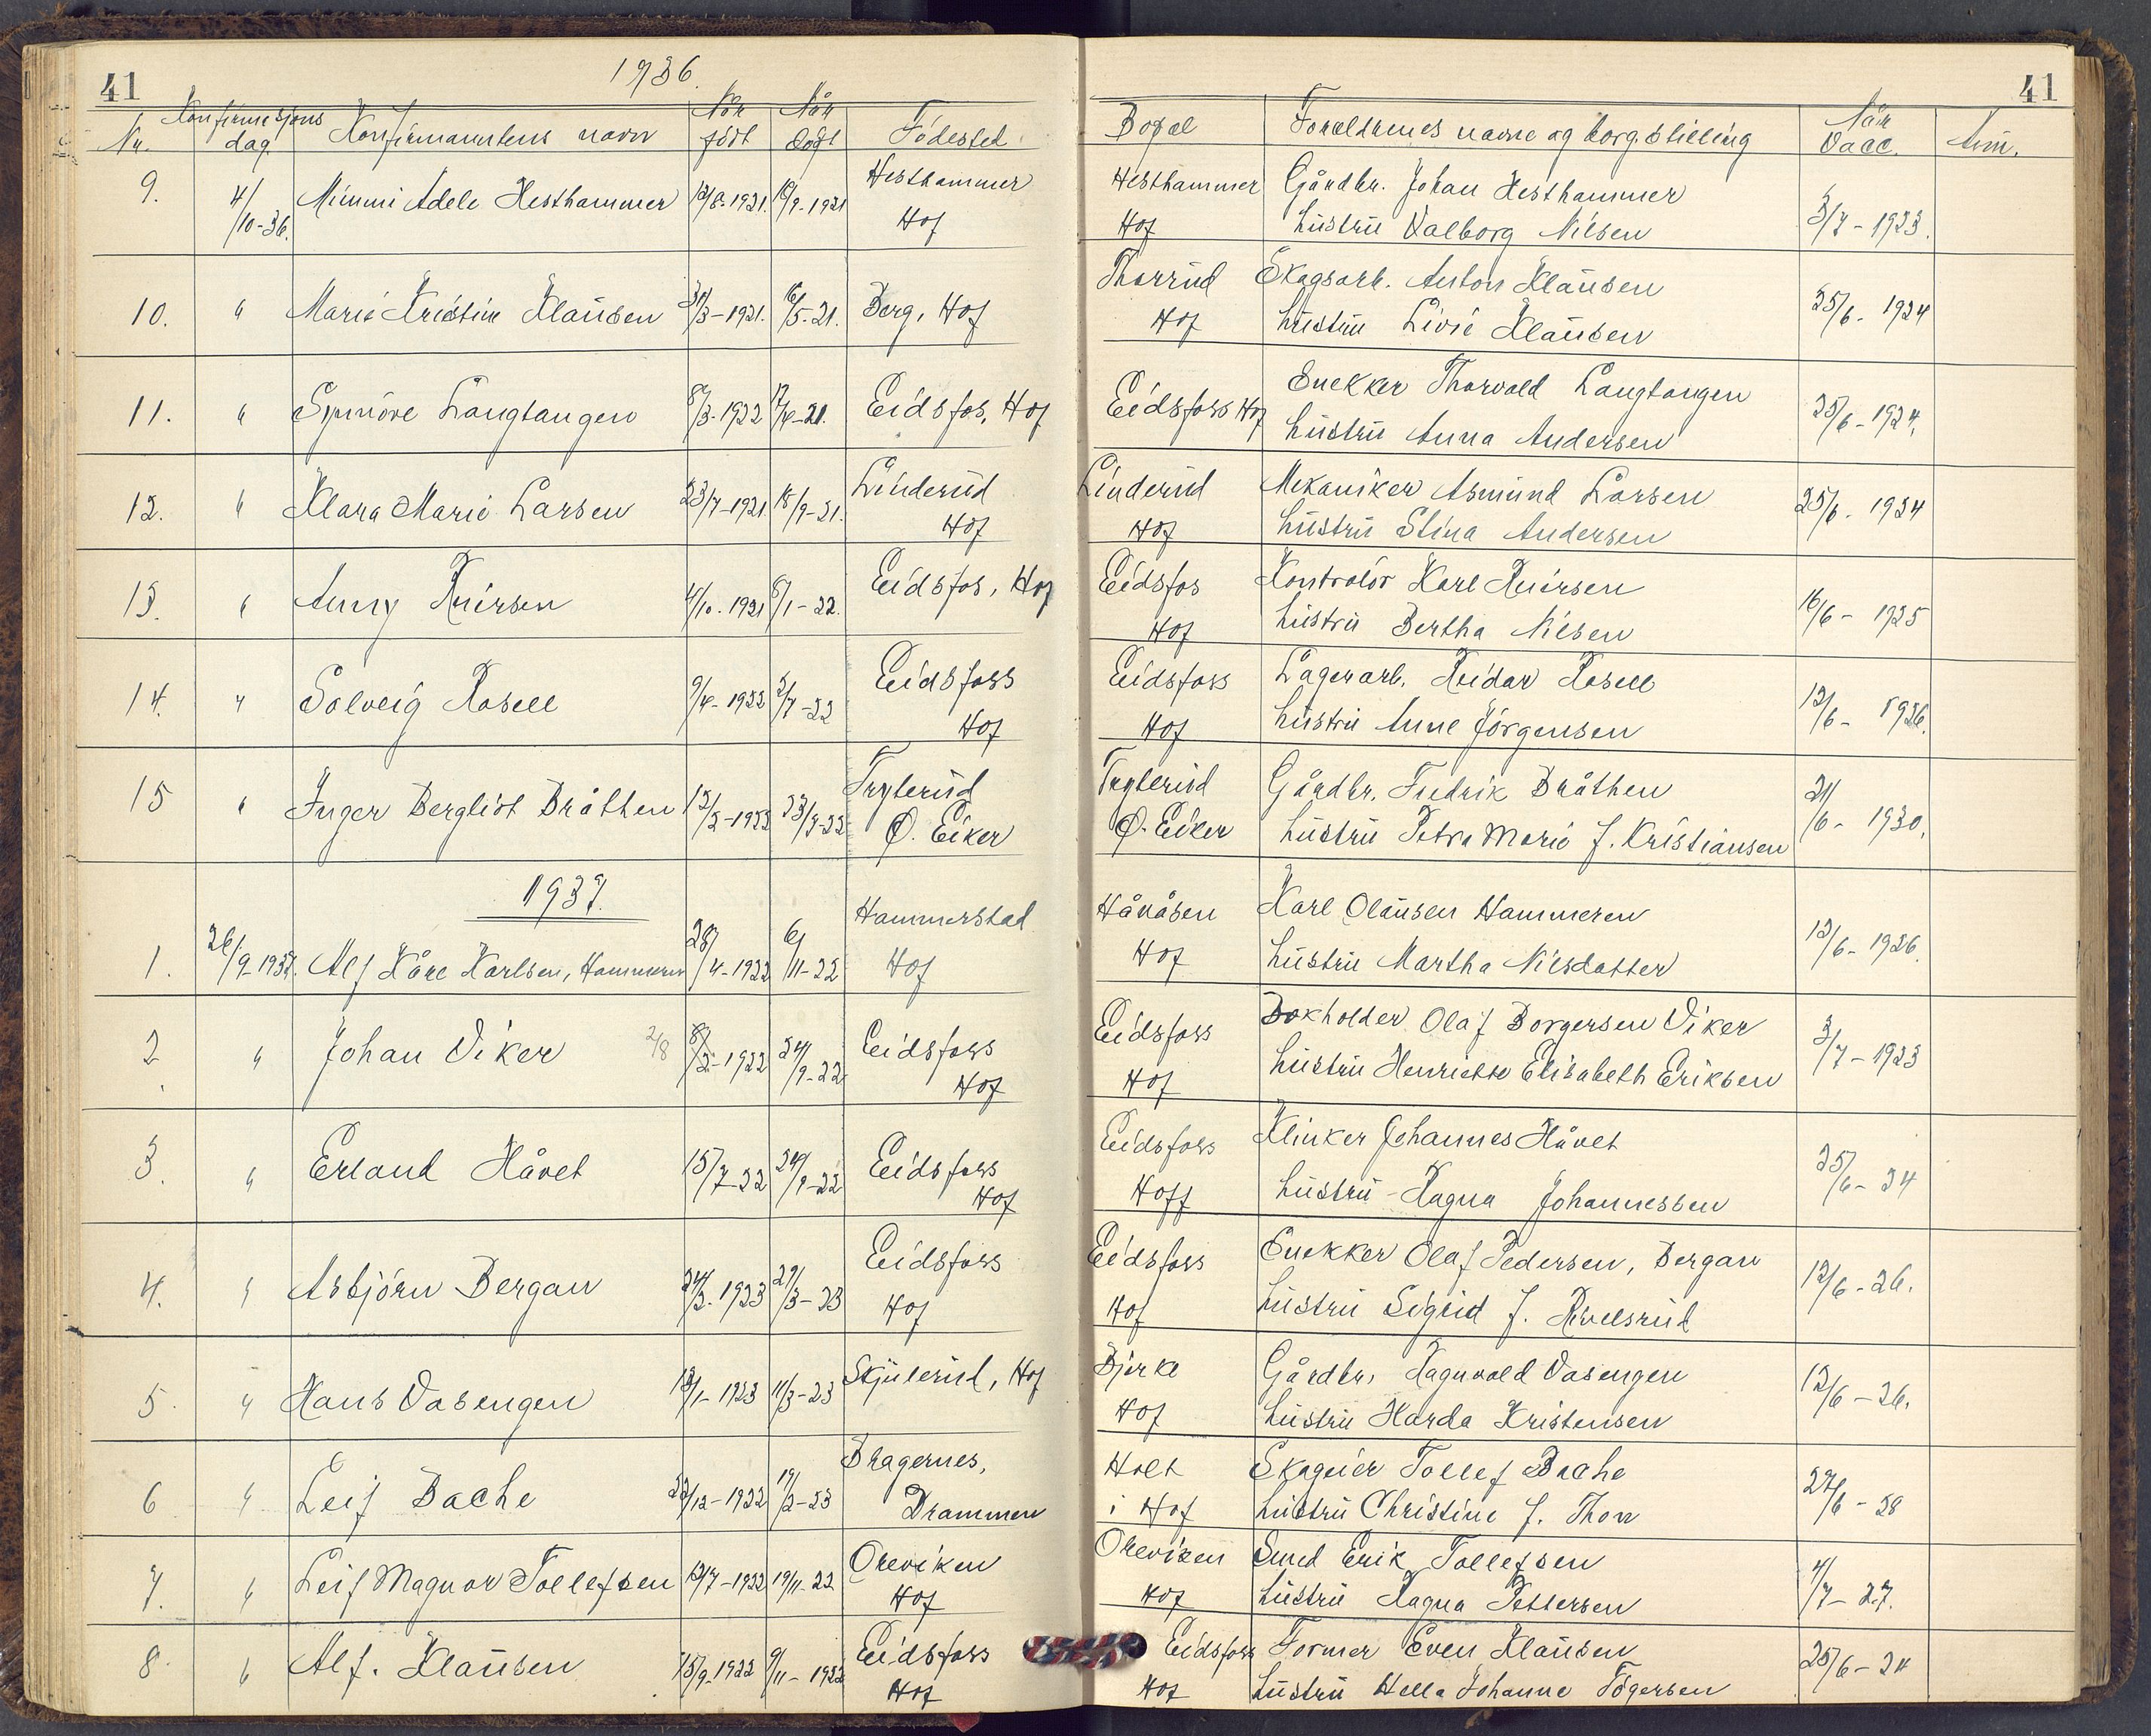 41
1936.
41
Nr. Konfirmasjons dag. Konfirmantens navn Når født Når døbt Fødested. Bopæl Forældrenes navne og borg. stilling Når Vacc. Anm.
9. 4/10-36. Mimmi Adele Hesthammer 1921. 1921 Hesthammer Hof Hesthammer Hof Gårdbr. Johan Hesthammer
hustru Valborg Nilsen 3/7 - 1923.
10. " Marie Kristine Klausen 31/3 - 1921. 16/5-21. Berg, Hof Thorrud Hof Skogsarb. Anton Klausen
hustru Livie Klausen 25/6 - 1924
11. " Synnöve Langtangen 8/3-1922 Eidsfos, Hof Eidsfoss Hof Snekker Thorvald Langtangen
hustru Anna Andersen 25/6 - 1924.
12. " Klara Marie Larsen 23/7-1921. 18/9-21. Linderud Hof Linderud Hof Mekaniker Asmund Larsen
hustru Stina Andersen 25/6 - 1924
13. " Anny 4/10-1921 8/1-22. Eidsfos, Hof Eidsfos Hof Kontrolör Karl
hustru Bertha Nilsen 16/6 - 1925
14. " Solveig Rosell 9/4-1922 2/7-22 Eidsfoss Hof Eidsfoss Hof Lagerarb. Reidar Rosell
hustru Anne Jörgensen 12/6 - 1926.
15 " Inger Bergliot Bråthen 12/2-1922 23/4-22 Tryterud Ø. Eiker Tryterud Ø. Eiker Gårdbr. Fredrik Bråthen
hustru Petra Marie f. Kristiansen 21/6 - 1930.
1937.
1. 26/9-1937. Alf Kåre Karlsen, Hammeren 28/4-1922 6/11-22 Hammerstad Hof Hånåsen Hof Karl Olausen Hammeren
hustru Martha Nilsdatter 12/6 - 1926.
2. " Johan Viker 2/8 8/2-1922 24/9-22 Eidsfoss Hof Eidsfoss Hof Bokholder Olaf Borgersen Viker
hustru Henriette Elisabeth Eriksen 3/7 - 1923
3. " Erland Håvet 15/7-22 24/9-22 Eidsfoss Hof Eidsfoss Hoff Klinker Johannes Håvet
hustru Ragna Johannessen 25/6 - 24
4. " Asbjörn Bergan 24/2-1923 29/3-23 Eidsfoss Hof Eidsfoss Hof Snekker Olaf Pedersen, Bergan
hustru Sigrid f. 12/6-26.
5. " Hans Vasengen 1923 11/3-23 Skjulerud, Hof Bjerke Hof Gårdbr. Ragnvald Vasengen
hustru Harda Kristensen 12/6 - 26.
6 " Leif Bache 22/12-1922 19/2-23 Bragernes, Drammen Holt i Hof Skogeier Tollef Bache
hustru Christine f. Thon 28
7. " Leif Magnar Tollefsen 12/7-1922 19/11-22 Oreviken Hof Oreviken Hof Smed Erik Tollefsen
hustru Ragna Pettersen 4/7 - 27.
8. " Alf. Klausen 15/9-1922 9/11-1922 Eidsfoss Hof Eidsfoss Hof Former Even Klausen
hustru Hella Johanne Tögersen 25/6 - 24